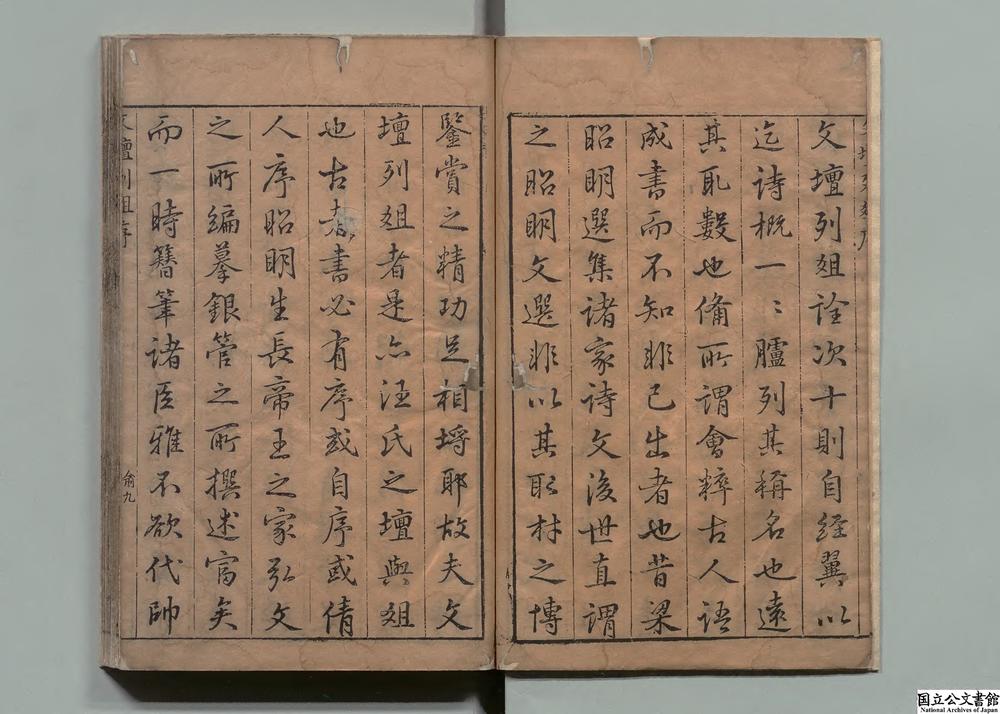 文壇列俎詮次十則自經翼以
迄詩概一〻臚列其稱名也遠
其取數也備所謂會粹古人語
成書而不知非己出者也昔梁
昭明選集諸家詩文後世直謂
之昭明文選非以其取材之博
鑒賞之精功足相埒耶故夫文
壇列俎者是亦汪氏之壇與俎
也古者書必有序或自序或倩
人序昭明生長帝王之家弘文
之所編摹銀管之所撰述富矣
而一時簪筆諸臣雅不欲代帥
文壇列俎序
俞九
国立公文書館
National Archives of Japan